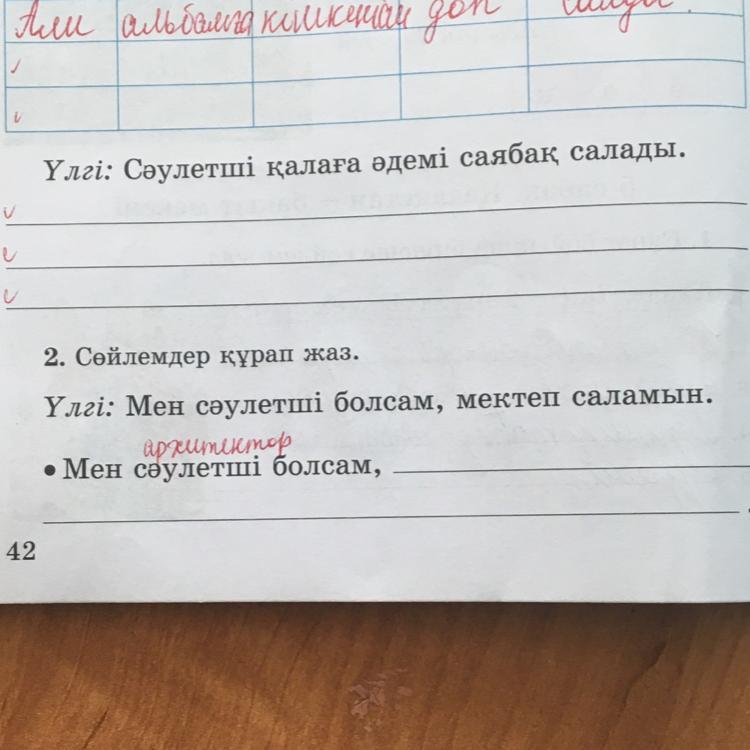 Али альбомға кішкентай доп
Үлгі: Сәулетші қалаға әдемі саябақ салады.
2. Сөйлемдер құрап жаз.
Үлгі: Мен сәулетші болсам, мектеп саламын.
архитектор
• Мен сәулетші болсам,
42